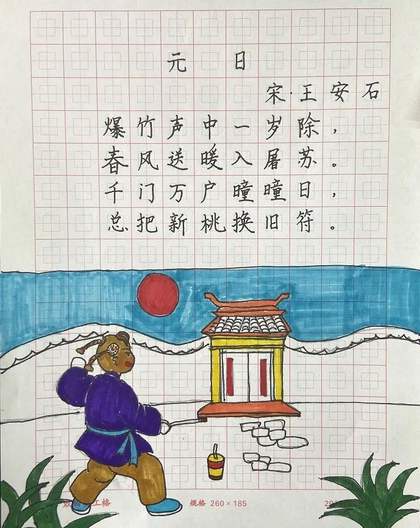 元 日
宋·王安石
爆竹声中一岁除，
春风送暖入屠苏。
千门万户曈曈日，
总把新桃换旧符。
规格 260×185